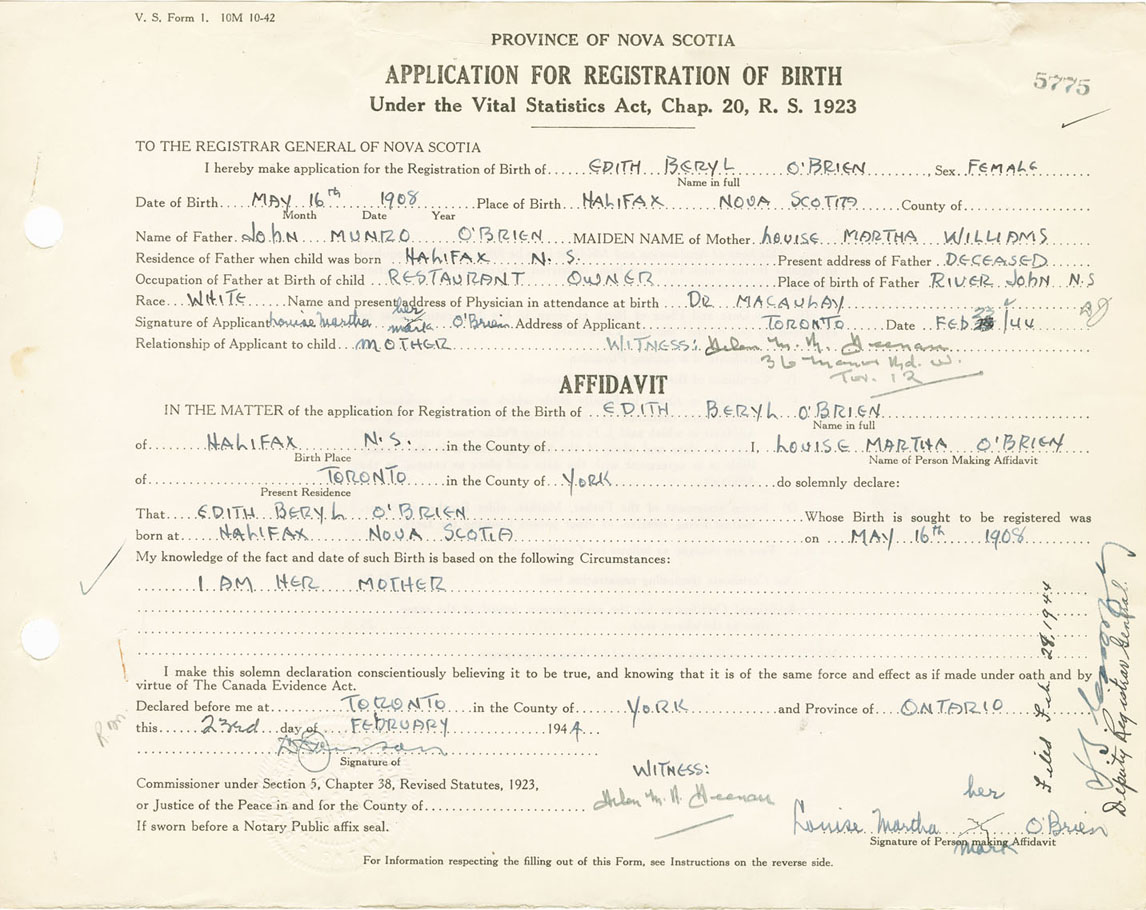 V. S. Form 1. 10M 10-42
PROVINCE OF NOVA SCOTIA
APPLICATION FOR REGISTRATION OF BIRTH
5775
Under the Vital Statistics Act, Chap. 20, R. S. 1923
TO THE REGISTRAR GENERAL OF NOVA SCOTIA
I hereby make application for the Registration of Birth of EDITH BERYL O'BRIEN, Sex FEMALE
Name in full
Date of Birth MAY 16th 1908 Place of Birth HALIFAX NOVA SCOTIA County of
Month Date Year
Name of Father JOHN MUNRO O'BRIEN MAIDEN NAME of Mother LOUISE MARTHA WILLIAMS
Residence of Father when child was born HALIFAX N. S. Present address of Father DECEASED
Occupation of Father at Birth of child RESTAURANT OWNER Place of birth of Father RIVER JOHN N.S
Race WHITE Name and present address of Physician in attendance at birth DR MACAULAY
her
Signature of Applicant Louise Martha mark O'Brien Address of Applicant TORONTO Date FEB 23 /44
Relationship of Applicant to child MOTHER WITNESS: Helen M. H. Heenan
36 Manor Rd. W.
Tor. 12
AFFIDAVIT
IN THE MATTER of the application for Registration of the Birth of EDITH BERYL O'BRIEN
Name in full
of HALIFAX N.S. in the County of I, LOUISE MARTHA O'BRIEN
Birth Place Name of Person Making Affidavit
of TORONTO in the County of YORK do solemnly declare:
Present Residence
That EDITH BERYL O'BRIEN Whose Birth is sought to be registered was
born at HALIFAX NOVA SCOTIA on MAY 16th 1908
My knowledge of the fact and date of such Birth is based on the following Circumstances:
I AM HER MOTHER
I make this solemn declaration conscientiously believing it to be true, and knowing that it is of the same force and effect as if made under oath and by
virtue of The Canada Evidence Act.
Declared before me at TORONTO in the County of YORK and Province of ONTARIO
this 23rd day of FEBRUARY 1944
Signature of
Commissioner under Section 5, Chapter 38, Revised Statutes, 1923,
or Justice of the Peace in and for the County of
If sworn before a Notary Public affix seal.
WITNESS:
Helen M. H. Heenan
her
Louise Martha X O'Brien
Signature of Person making Affidavit
mark
For Information respecting the filling out of this Form, see Instructions on the reverse side.
Filed Feb. 28, 1944
Deputy Registrar General.